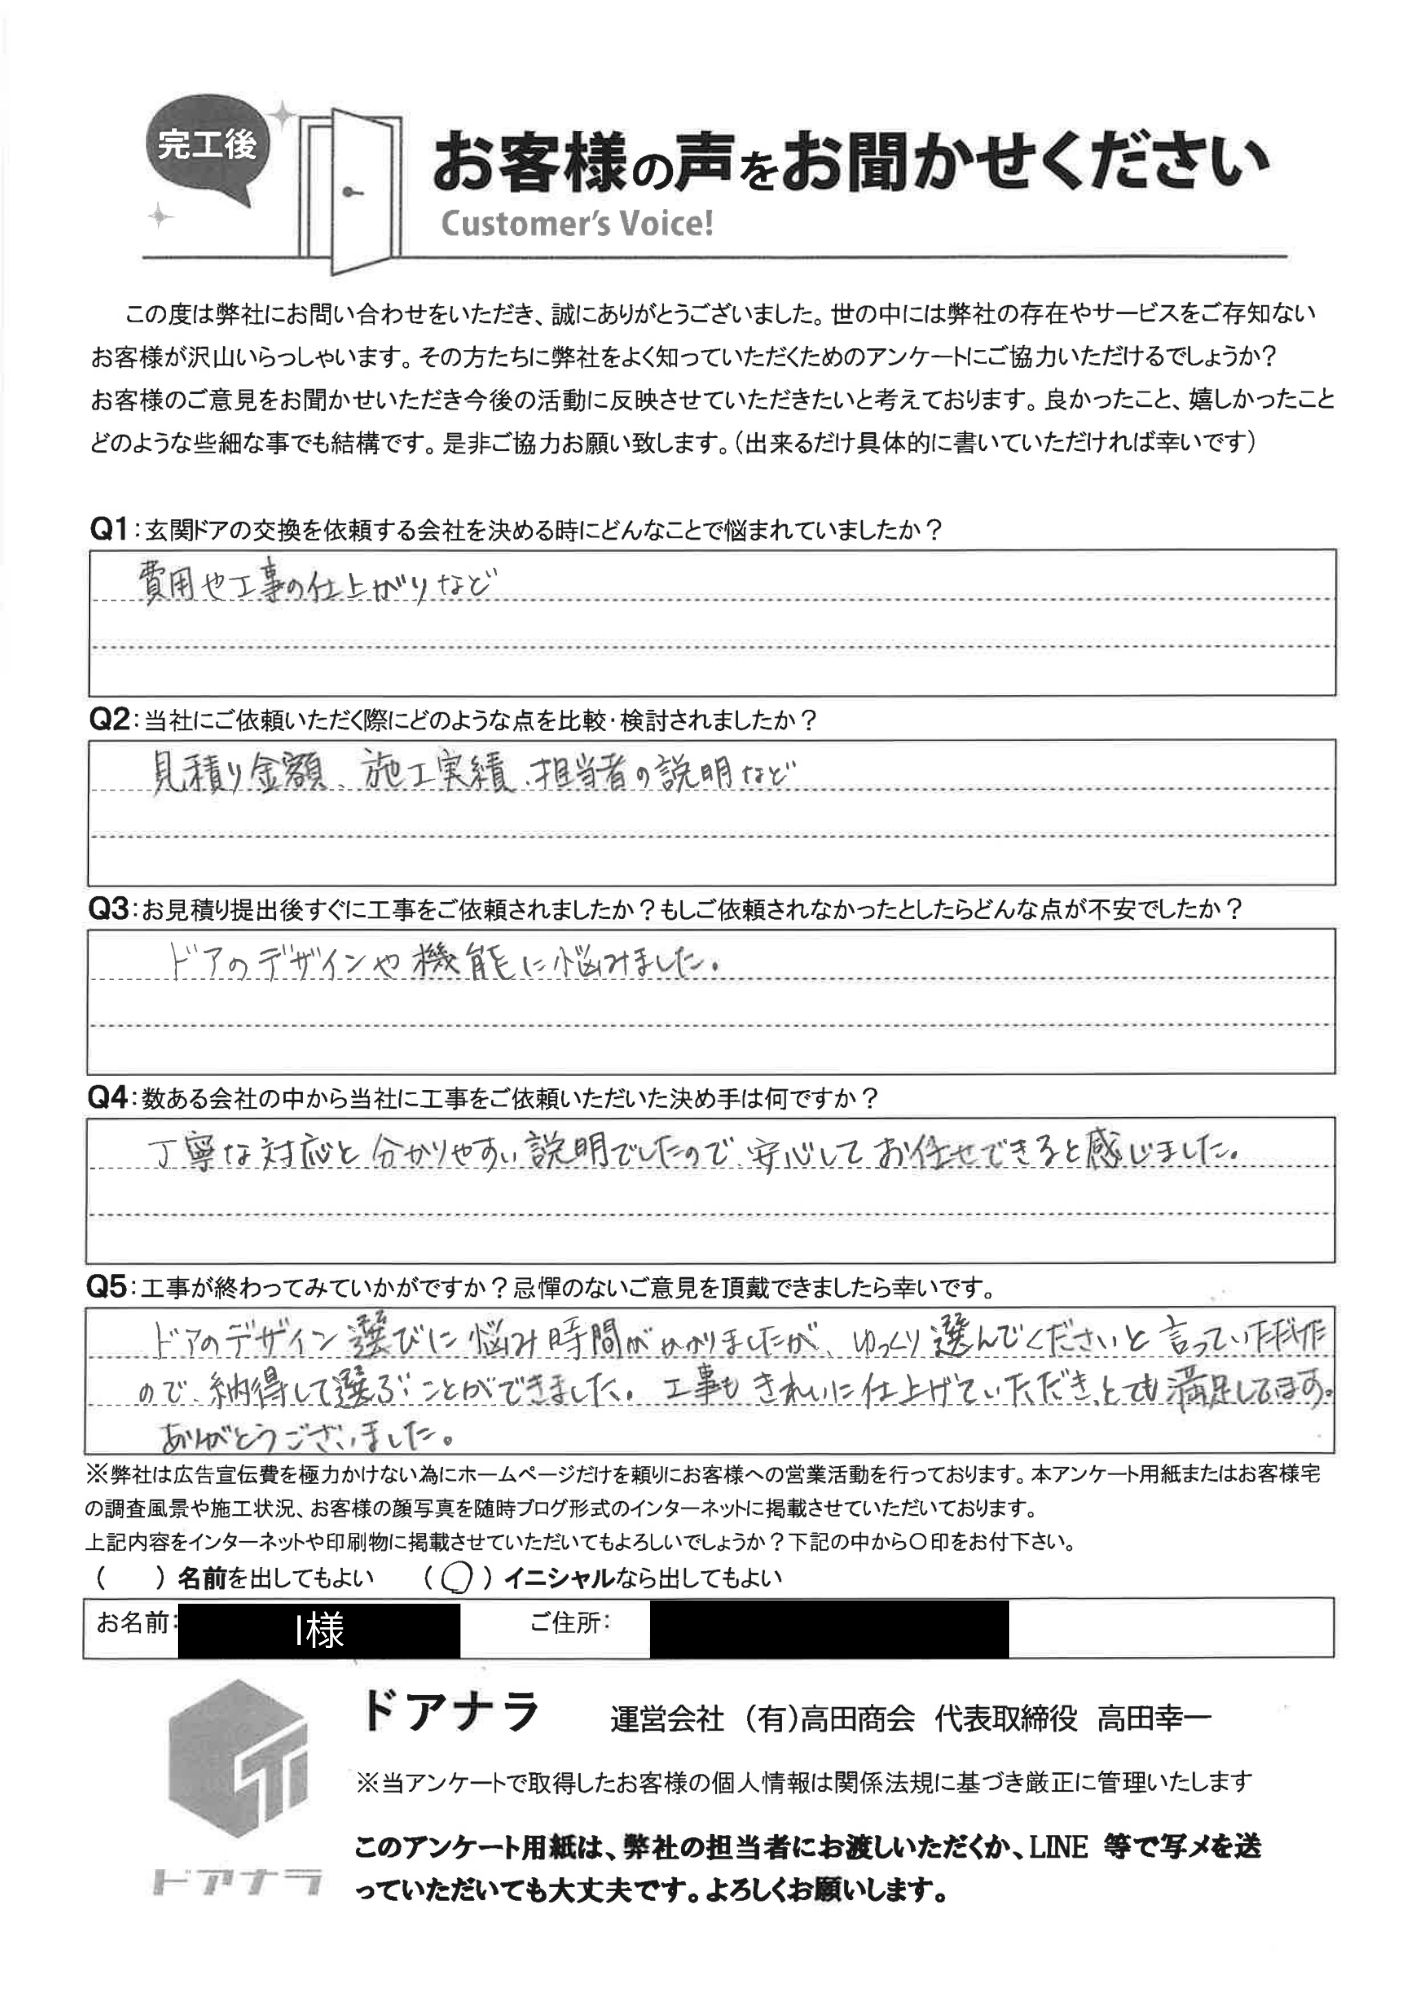 完工後
お客様の声をお聞かせください
Customer's Voice!
この度は弊社にお問い合わせをいただき、誠にありがとうございました。世の中には弊社の存在やサービスをご存知ない
お客様が沢山いらっしゃいます。その方たちに弊社をよく知っていただくためのアンケートにご協力いただけるでしょうか？
お客様のご意見をお聞かせいただき今後の活動に反映させていただきたいと考えております。良かったこと、嬉しかったこと
どのような些細な事でも結構です。是非ご協力お願い致します。（出来るだけ具体的に書いていただければ幸いです）
Q1：玄関ドアの交換を依頼する会社を決める時にどんなことで悩まれていましたか？
費用や工事の仕上がりなど
Q2：当社にご依頼いただく際にどのような点を比較・検討されましたか？
見積り金額、施工実績、担当者の説明など
Q3：お見積り提出後すぐに工事をご依頼されましたか？もしご依頼されなかったとしたらどんな点が不安でしたか？
ドアのデザインや機能に悩みました。
Q4：数ある会社の中から当社に工事をご依頼いただいた決め手は何ですか？
丁寧な対応と分かりやすい説明でしたので、安心してお任せできると感じました。
Q5：工事が終わってみていかがですか？忌憚のないご意見を頂戴できましたら幸いです。
ドアのデザイン選びに悩み時間がかかりましたが、ゆっくり選んでくださいと言っていただけた
ので、納得して選ぶことができました。工事もきれいに仕上げていただき、とても満足してます。
ありがとうございました。
※弊社は広告宣伝費を極力かけない為にホームページだけを頼りにお客様への営業活動を行っております。本アンケート用紙またはお客様宅
の調査風景や施工状況、お客様の顔写真を随時ブログ形式のインターネットに掲載させていただいております。
上記内容をインターネットや印刷物に掲載させていただいてもよろしいでしょうか？下記の中から〇印をお付下さい。
（　　）名前を出してもよい　（〇）イニシャルなら出してもよい
お名前： I様 ご住所：
ドアナラ 運営会社 （有）高田商会 代表取締役 高田幸一
※当アンケートで取得したお客様の個人情報は関係法規に基づき厳正に管理いたします
このアンケート用紙は、弊社の担当者にお渡しいただくか、LINE 等で写メを送
っていただいても大丈夫です。よろしくお願いします。
ドアナラ